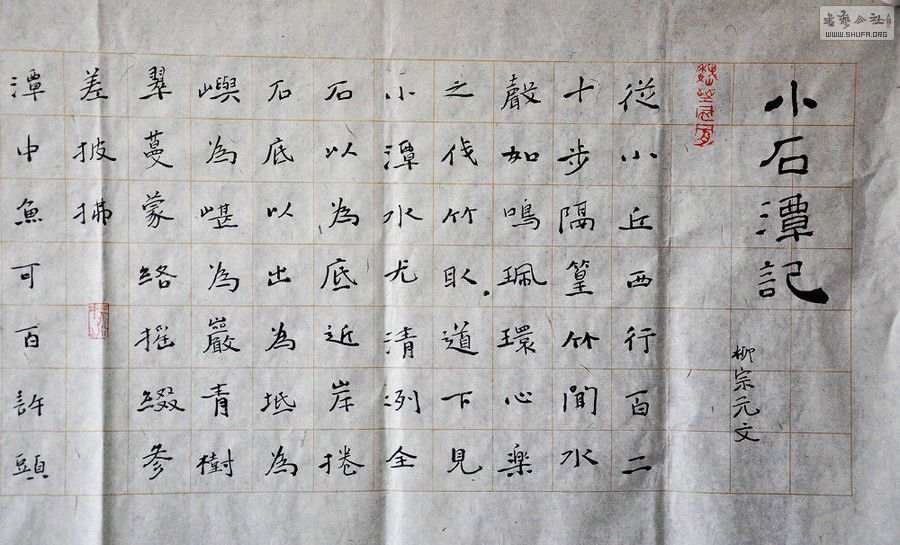 小石潭記
柳宗元文
從小丘西行百二
十步隔篁竹聞水
聲如鳴珮環心楽
之伐竹取道下見
小潭水尤清冽全
石以為底近岸捲
石底以出為坻為
嶼為嵁為巖青樹
翠蔓蒙絡摇綴參
差披拂
潭中魚可百許頭
書藝公社
WWW.SHUFA.ORG